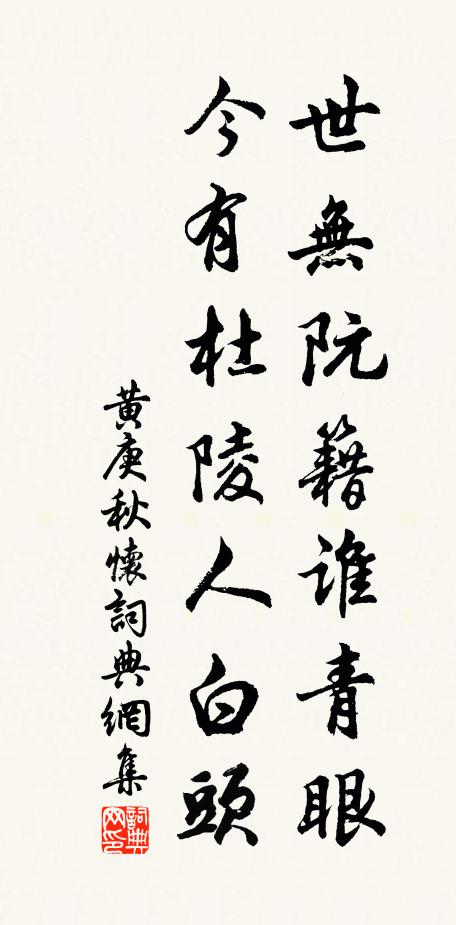 世無阮籍誰青眼
今有杜陵人白頭
黄庚秋懷詞典網集
詞典網印